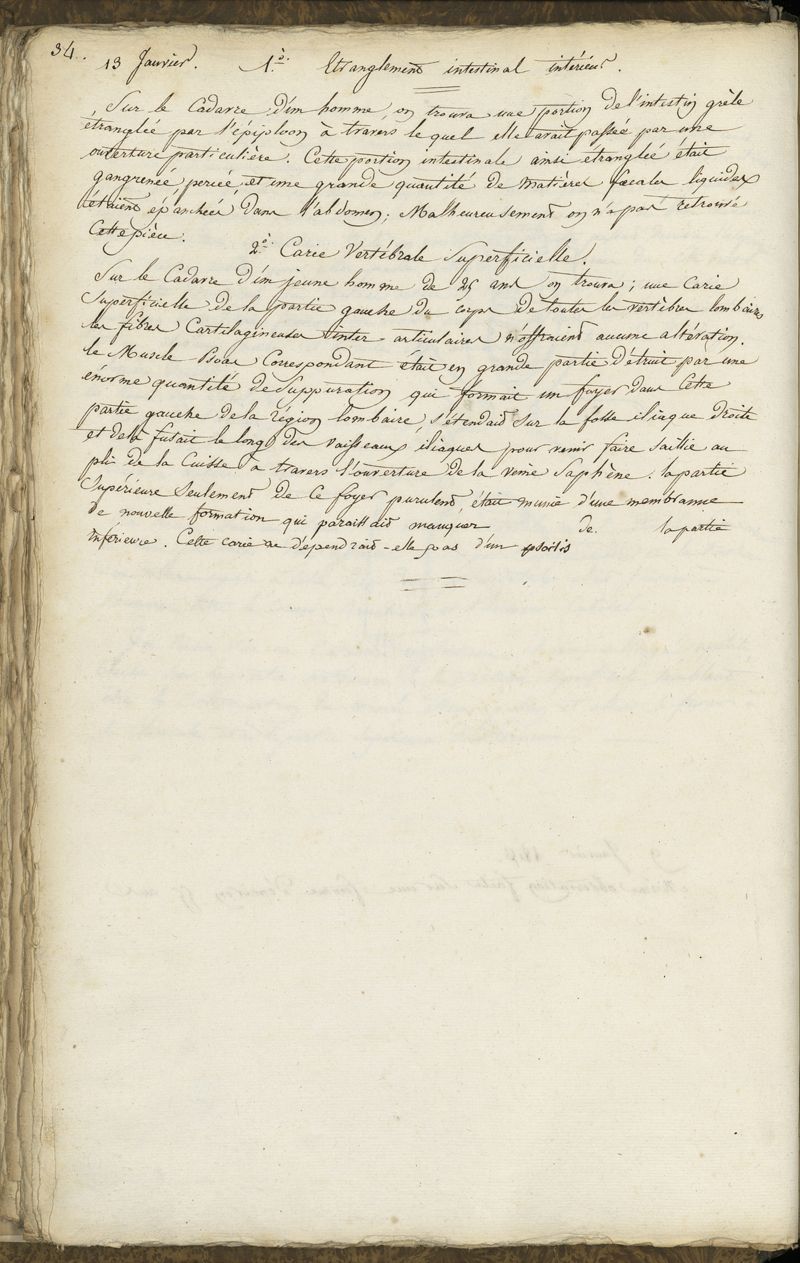 34.
13 Janvier. 1.° Etranglement intestinal intérieur.
Sur le Cadavre d'un homme, on trouva une portion de l'intestin grèle
étranglée par l'épiploon à travers lequel elle avait passée par une
ouverture particulière. Cette portion intestinale ainsi étranglée était
gangrenée, percée, et une grande quantité de matières fœcales liquides
étaient épanchées dans l'abdomen; Malheureusement on n'a pas retrouvé
Cette pièce.
2.° Carie Vertébrale Superficielle.
Sur le Cadavre d'un jeune homme de 26 ans on trouva; une Carie
Superficielle de la partie gauche du corps de toutes les vertèbres lombaires,
les fibres Cartilagineuses inter-articulaires n'offraient aucune altération.
le Muscle Psoas Correspondant était en grande partie détruit par une
énorme quantité de Suppuration qui formait un foyer dans Cette
partie gauche de la région lombaire, s'étendait sur la fosse iliaque droite
et de là fusait le long des vaisseaux iliaques pour venir faire saillie au
pli de la Cuisse à travers l'ouverture de la veine Saphène. la partie
Supérieure Seulement de Ce foyer purulent, était munie d'une membranne
de nouvelle formation qui paraissait manquer de. la partie
inférieure. Cette carie ne dépendrait-elle pas d'un psoitis